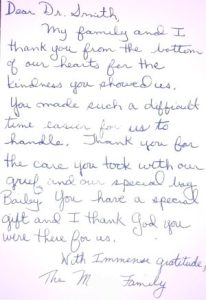 Dear Dr. Smith,
My family and I
thank you from the bottom
of our hearts for the
kindness you showed us.
You made such a difficult
time easier for us to
handle. Thank you for
the care you took with our
grief and our special boy
Bailey. You have a special
gift and I thank God you
were there for us.
With Immense gratitude,
The M Family